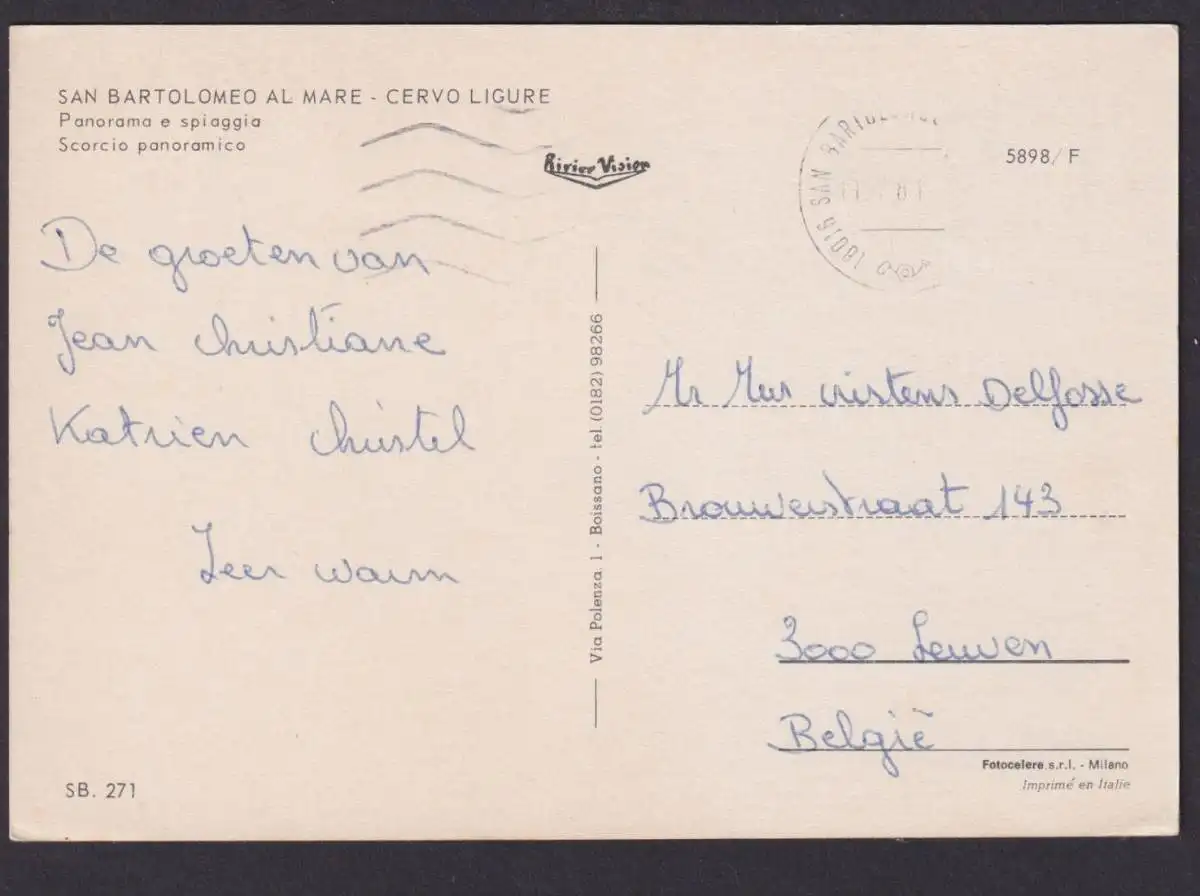 SAN BARTOLOMEO AL MARE - CERVO LIGURE
Panorama e spiaggia
Scorcio panoramico
De groeten van
Jean Christiane
Katrien Christel
Zeer warm
SB. 271
Via Polenza, 1 - Boissano - tel. (0182) 98266
18016 SAN
5898/F
Mr Mvr Delfosse
Brouwerstraat 143
3000 Leuven
België
Fotocelere s.r.l. - Milano
Imprimé en Italie